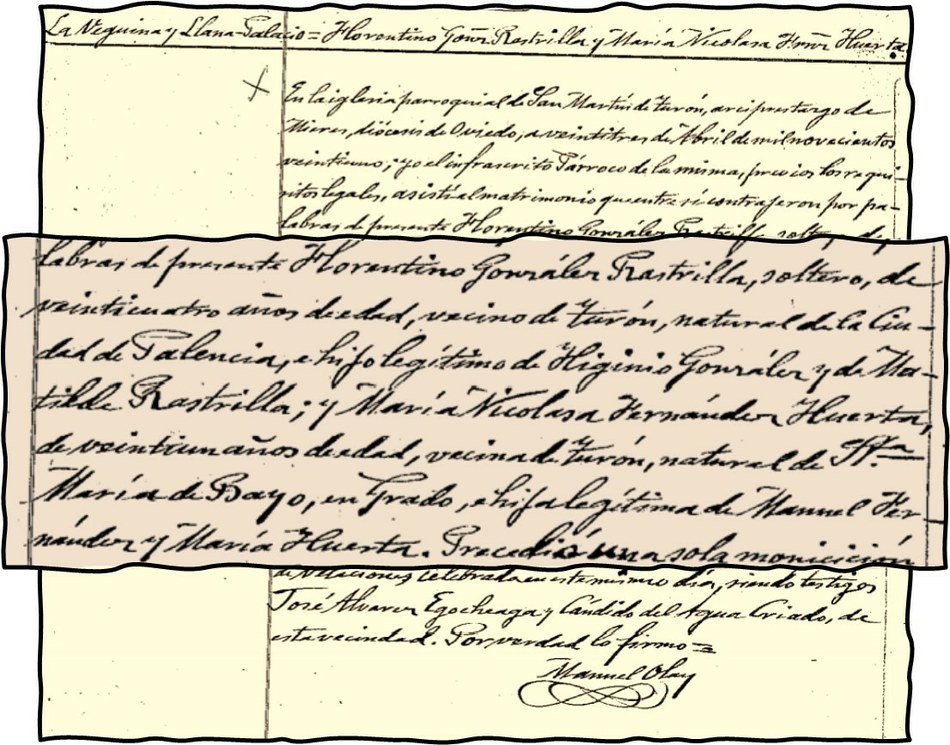 La Veguina y Llana-Palacio = Florentino Gonz Rastrilla y María Nicolasa Frnz Huerta.
En la iglesia parroquial de San Martín de Turón, arciprestazgo de
Mieres, diócesis de Oviedo, a veintitres de Abril de mil novecientos
veintiuno; yo el infrascrito Párroco de la misma, previos los requi-
sitos legales, asistí al matrimonio que entre sí contrajeron por pa-
labras de presente Florentino González Rastrilla, soltero, de
labras de presente Florentino González Rastrilla, soltero, de
veinticuatro años de edad, vecino de Turón, natural de la Ciu-
dad de Palencia, e hijo legítimo de Higinio González y de Ma-
tilde Rastrilla; y María Nicolasa Fernández Huerta,
de veintiun años de edad, vecina de Turón, natural de Sta
María de Bayo, en Grado, e hija legítima de Manuel Fer-
nández y María Huerta. Precedió una sola monición
de velaciones celebrada en este mismo día, siendo testigos
José Alvarez Egocheaga y Cándido del Agua Criado, de
esta vecindad. Por verdad lo firmo =
Manuel Olay